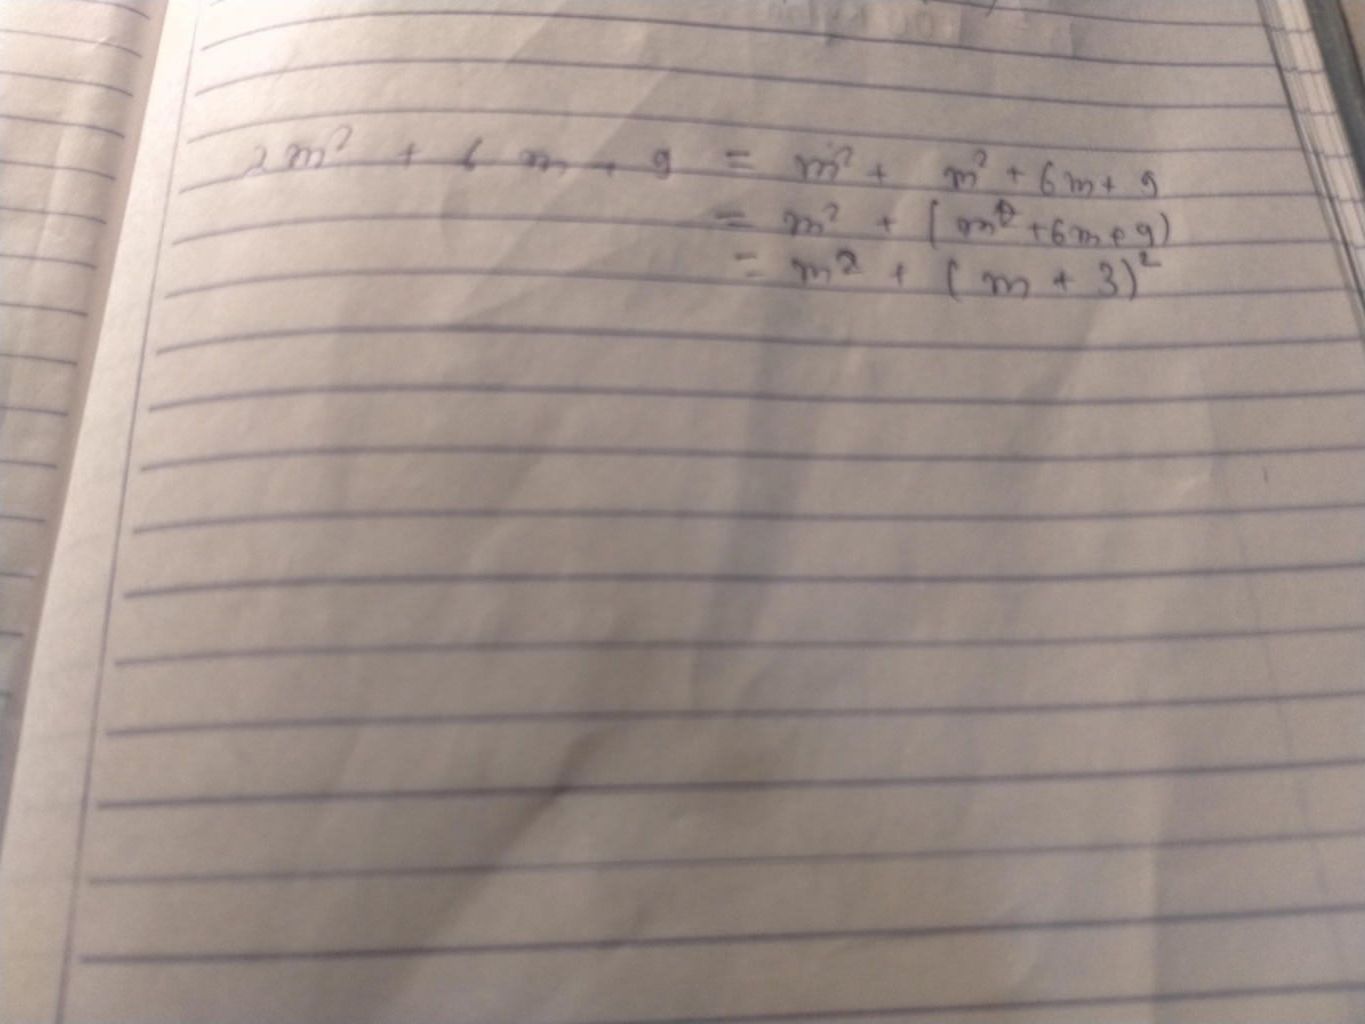 2m² + 6m + 9 = m² + m² + 6m + 9
= m² + (m² + 6m + 9)
= m² + (m + 3)²